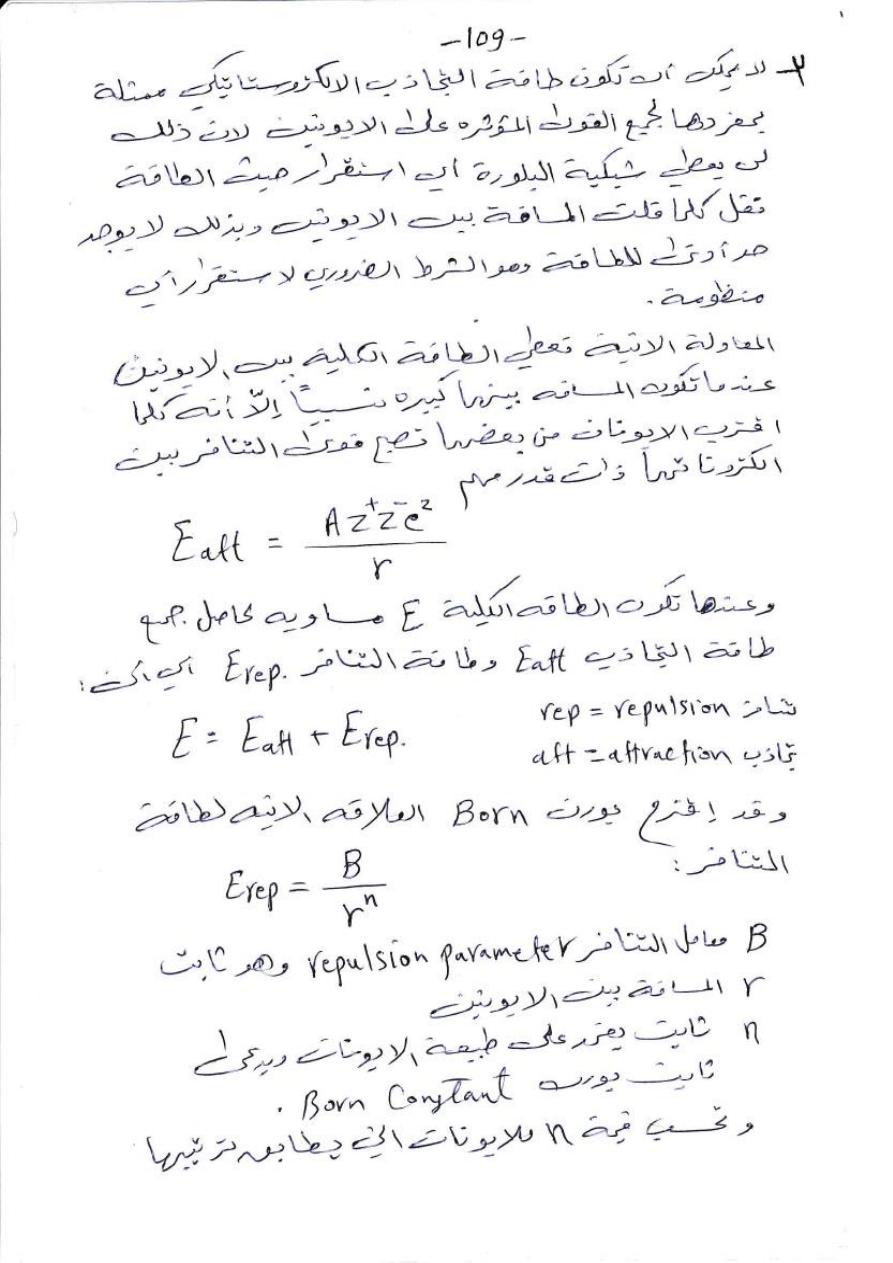 -109-
٢- لا يمكن ان تكون طاقة التجاذب الالكتروستاتيكي ممثلة
بمفردها لجميع القوى المؤثره على الايونين لان ذلك
لن يعطي شبكية البلورة أي استقرار حيث الطاقة
تقل كلما قلت المسافة بين الايونين وبذلك لا يوجد
حد أدنى للطاقة وهو الشرط الضروري لاستقرار أي
منظومة.
المعادلة الاتية تعطي الطاقة الكلية بين الايونين
عندما تكون المسافه بينهما كبيره نسبياً إلّا أنه كلما
اقترب الايونات من بعضهما تصبح قوى التنافر بين
الكتروناتهما ذات قدر مهم
Eatt = AZ⁺Z⁻e² / r
وعندها تكون الطاقه الكلية E مساويه لحاصل جمع
طاقة التجاذب Eatt وطاقة التنافر Erep. أي أن:
تنافر rep = repulsion
E = Eatt + Erep.
تجاذب att = attraction
وقد إقترح بورن Born العلاقه الاتيه لطاقة
التنافر:
Erep = B / rⁿ
B معامل التنافر repulsion parameter وهو ثابت
r المسافة بين الايونين
n ثابت يعتمد على طبيعة الايونات ويدعى
ثابت بورن Born Constant .
وتحسب قيمة n للايونات التي يطابق ترتيبها